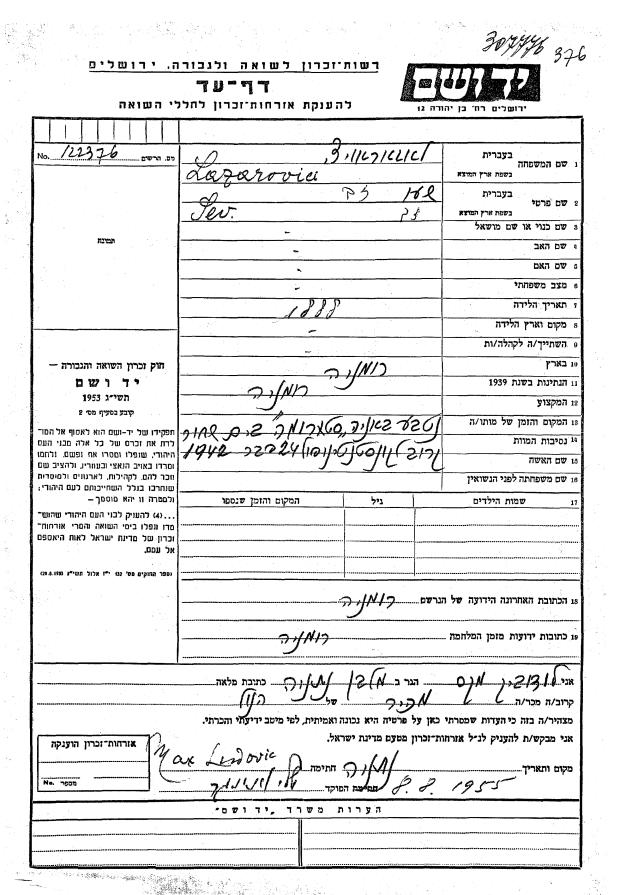 307776 376
רשות־זכרון לשואה ולגבורה, ירושלים
דף־עד
להענקת אזרחות־זכרון לחללי השואה
יד ושם
ירושלים רח' בן יהודה 12
No. 122376 מס. הרשום
תמונה
חוק זכרון השואה והגבורה —
יד ושם
תשי"ג 1953
קובע בסעיף מס' 2
תפקידו של יד־ושם הוא לאסוף אל המו־
לדת את זכרם של כל אלה מבני העם
היהודי, שנפלו ומסרו את נפשם, נלחמו
ומרדו באויב הנאצי ובעוזריו, ולהציב שם
וזכר להם, לקהילות, לארגונים ולמוסדות
שנחרבו בגלל השתייכותם לעם היהודי;
ולמטרה זו יהא מוסמך —
...(4) להעניק לבני העם היהודי שהוש־
מדו ונפלו בימי השואה והמרי אזרחות־
זכרון של מדינת ישראל לאות היאספם
אל עמם.
1 שם המשפחה בעברית לאזאראוויץ
בשפת ארץ המוצא Lazarovia
2 שם פרטי בעברית זב
בשפת ארץ המוצא Sev. זב
3 שם כנוי או שם מושאל -
4 שם האב -
5 שם האם -
6 מצב משפחתי -
7 תאריך הלידה 1888
8 מקום וארץ הלידה -
9 השתייך/ה לקהלה/ות -
10 בארץ רומניה
11 הנתינות בשנת 1939 רומניה
12 המקצוע
13 המקום והזמן של מותו/ה נטבע באניה "סטרומה" בים שחור
14 נסיבות המוות
15 שם האשה קרוב לקונסטנטינופול 24 דבר 1942
16 שם משפחתה לפני הנשואין
17 שמות הילדים גיל המקום והזמן שנספו
18 הכתובת האחרונה הידועה של הנרשם רומניה
19 כתובות ידועות מזמן המלחמה רומניה
אני לודוביק מקס הגר ב מלבן נתניה כתובת מלאה
קרוב/ה מכר/ה מכיר של הנ"ל
מצהיר/ה בזה כי העדות שמסרתי כאן על פרטיה היא נכונה ואמיתית, לפי מיטב ידיעתי והכרתי.
אני מבקש/ת להעניק לנ"ל אזרחות־זכרון מטעם מדינת ישראל.
מקום ותאריך נתניה חתימה Max Ludovic
8. 8. 1955 חתימת הפוקד
אזרחות־זכרון הוענקה
No. מספר
הערות משרד "יד ושם"